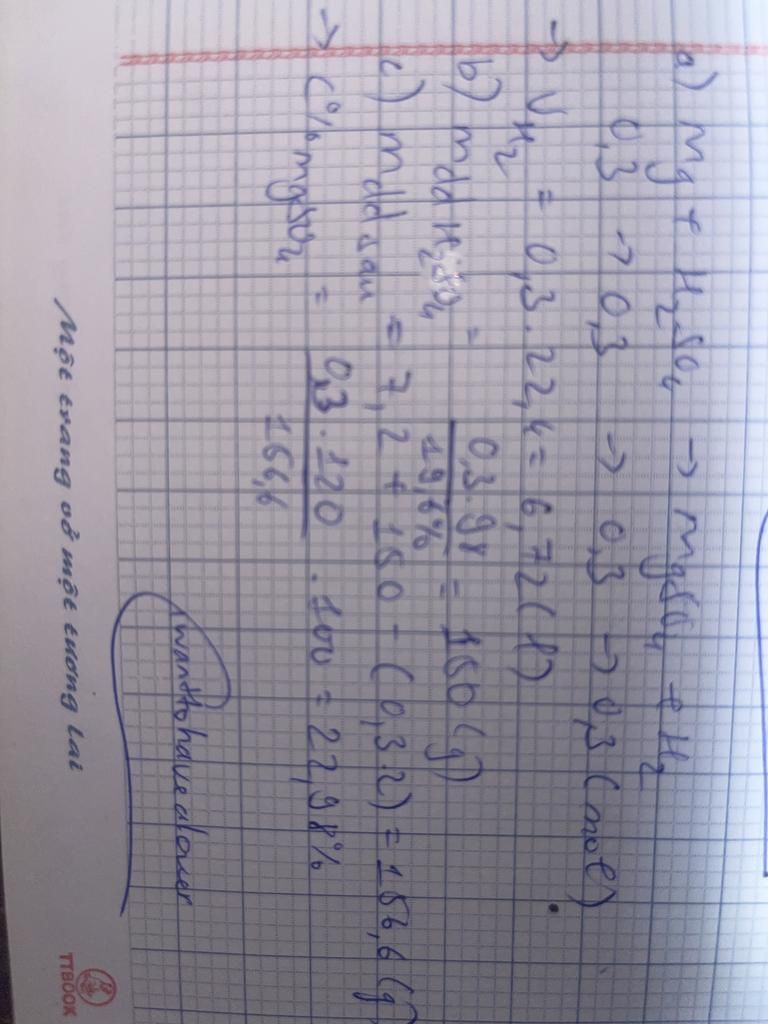 a) Mg + H2SO4 → MgSO4 + H2
0,3 → 0,3 → 0,3 → 0,3 (mol)
→ VH2 = 0,3 . 22,4 = 6,72 (l)
b) mdd H2SO4 = 0,3.98 / 19,6% = 150 (g)
c) mdd sau = 7,2 + 150 - (0,3.2) = 156,6 (g)
→ C% MgSO4 = 0,3.120 / 156,6 . 100 = 22,98%
Iwanttohavealover
Một trang vở một tương lai
TTBOOK